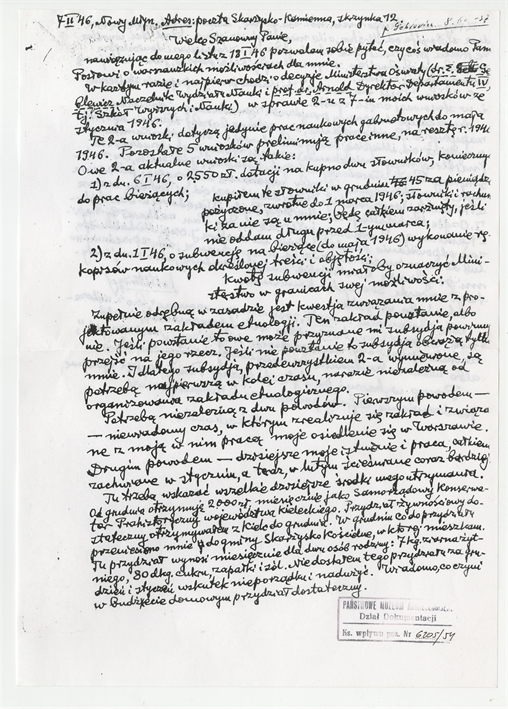 7 II 46, Nowy Młyn, Adres: poczta Skarżysko-Kamienna, skrzynka 12.
Wielce Szanowny Panie,
nawiązując do mego listu z 18 I 46 pozwalam sobie pytać, czy coś wiadomo Panu
Posłowi o warszawskich możliwościach dla mnie.
W każdym razie i najpierw chodzi o decyzję Ministerstwa Oświaty (dr.
Naczelnik Wydziału Nauki i prof. dr. Arnold Dyrektor Departamentu IV
tj. Szkół Wyższych i Nauki) w sprawie 2-u z 7-iu moich wniosków ze
stycznia 1946.
Te 2-a wnioski dotyczą jedynie prac naukowych gabinetowych do maja
1946. Pozostałe 5 wniosków preliminują prace inne, na resztę r. 1946.
Owe 2-a aktualne wnioski są takie:
1) z dn. 6 I 46, o 2550 zł. dotacji na kupno dwu słowników, koniecznych
do prac bieżących;
kupiłem te słowniki w grudniu 45 za pieniądze
pożyczone, zwrotne do 1 marca 1946; słowniki i rachunki
za nie są u mnie; będę całkiem zarżnięty, jeśli
nie oddam długu przed 1-ym marca;
2) z dn. 1 I 46, o subwencję na bieżące (do maja 1946) wykonanie rękopisów
naukowych określonej treści i objętości;
kwotę subwencji miałoby oznaczyć Ministerstwo
w granicach swej możliwości.
Zupełnie odrębną w zasadzie jest kwestja związania mnie z projektowanym
zakładem etnologii. Ten zakład powstanie, albo
nie. Jeśli powstanie to owe może przyznane mi subsydja powinny
przejść na jego rzecz. Jeśli nie powstanie to subsydja obciążą tylko
mnie. I dlatego subsydja, przedewszystkiem 2-a wymienione, są
potrzebą najpierwszą w kolei czasu, narazie niezależną od
organizowania zakładu etnologicznego.
Potrzebą niezależną z dwu powodów. Pierwszym powodem —
— niewiadomy czas, w którym zrealizuje się zakład i związane
z moją w nim pracą moje osiedlenie się w Warszawie.
Drugim powodem — dzisiejsze moje istnienie i praca, całkiem
zachwiane w styczniu, a teraz, w lutym ścieśniane coraz bardziej.
Tu trzeba wskazać wszelkie dzisiejsze środki mego utrzymania.
Od grudnia otrzymuję 2000 zł, miesięcznie jako Samorządowy Konserwator
Prehistoryczny województwa kieleckiego. Przydział żywnościowy dostateczny
otrzymywałem z Kielc do grudnia. W grudniu co do przydziału
przeniesiono mnie do gminy Skarżysko Kościelne, w której mieszkam.
Tu przydział wynosi miesięcznie dla dwu osób rodziny: 7 kg. ziarna żytniego,
80 dkg. cukru, zapałki i sól. Nie dostałem tego przydziału za grudzień
i styczeń wskutek nieporządku i nadużyć. Wiadomo, co czyni
w budżecie domowym przydział dostateczny.
PAŃSTWOWE MUZEUM
Dział Dokumentacji
Ks. wpływu poz. Nr 6205/54